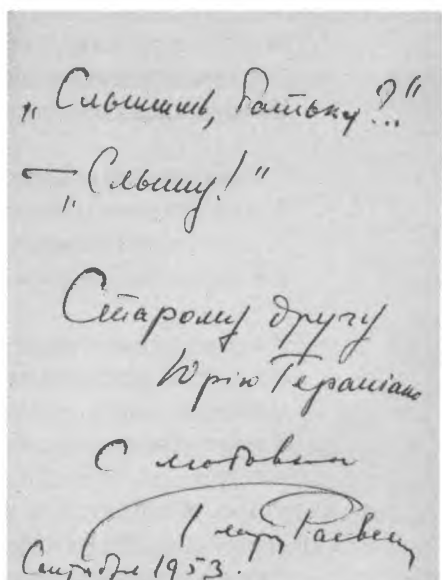 „Слышишь, батьку?.."
— „Слышу!"
Старому другу
Юрію Терапіано
С любовью
Георгій Раевскій
Сентябрь 1953.